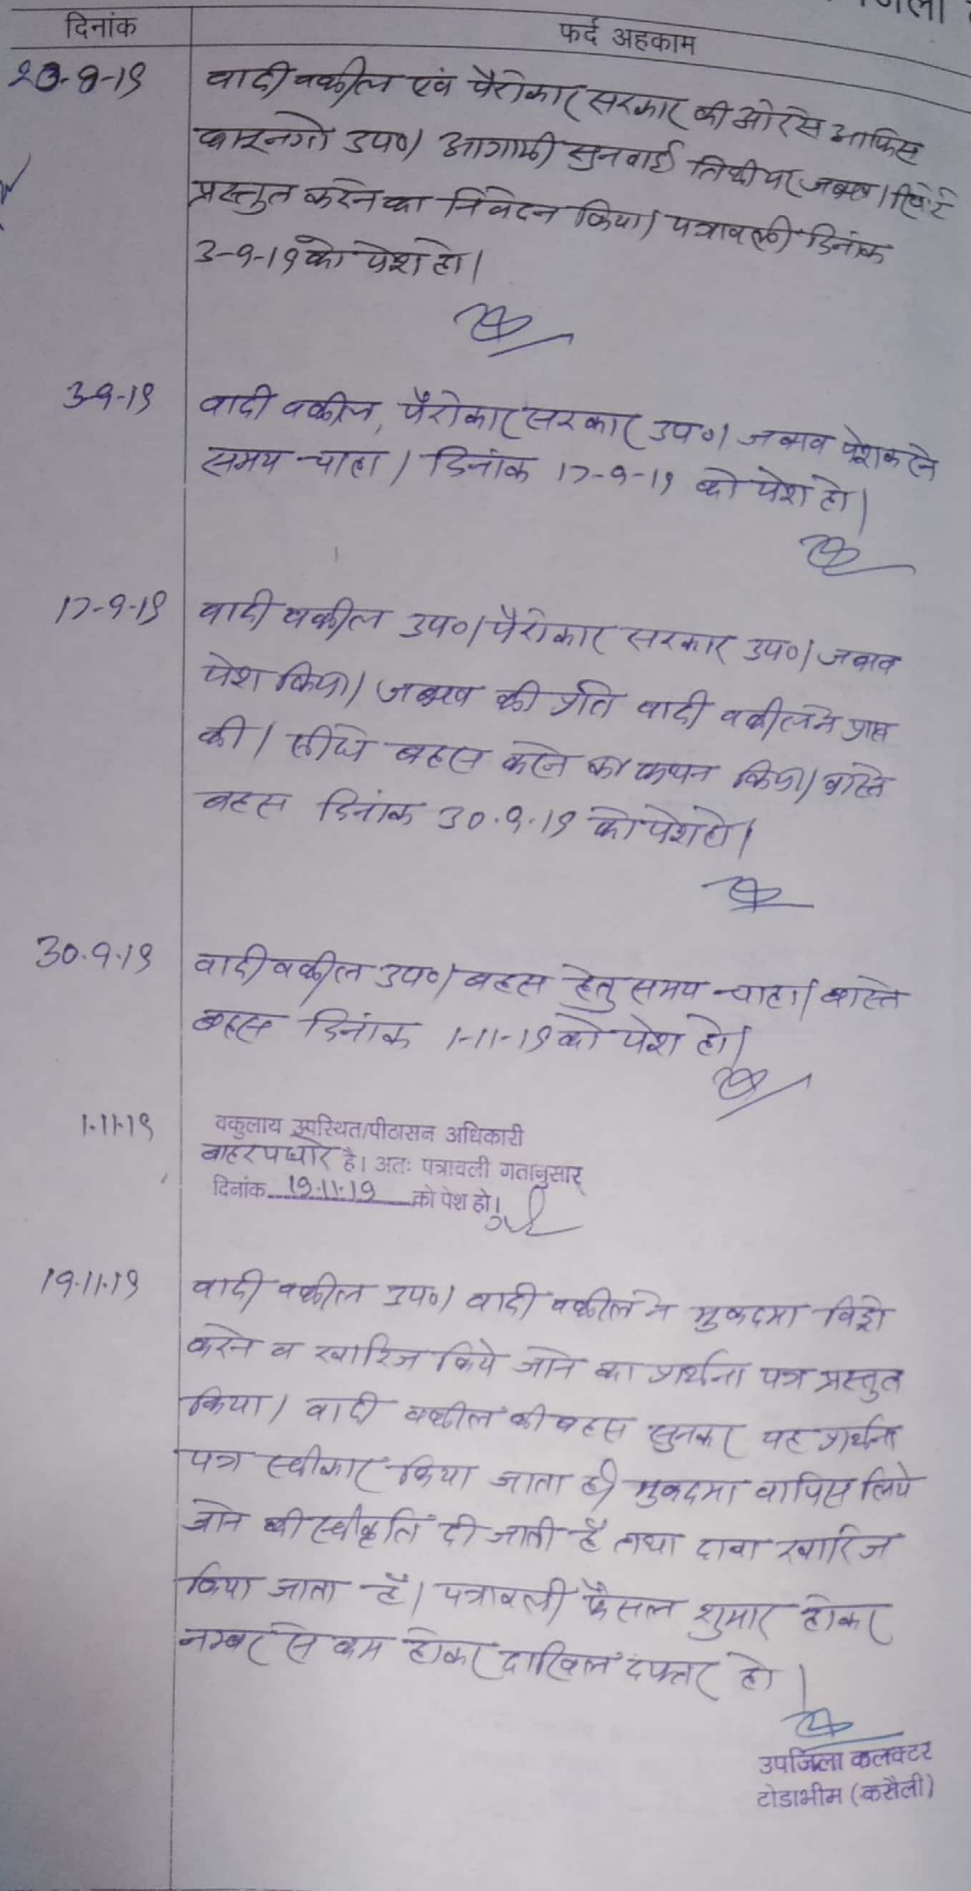 जिला
दिनांक
फर्द अहकाम
20-8-19
वादी वकील एवं पैरोकार सरकार की ओर से आफिस
कानूनगो उप०। आगामी सुनवाई तिथी पर जबाब। रिपोर्ट
प्रस्तुत करने का निवेदन किया। पत्रावली दिनांक
3-9-19 को पेश हो।
3-9-19
वादी वकील, पैरोकार सरकार उप०। जबाव पेश करने
समय चाहा। दिनांक 17-9-19 को पेश हो।
17-9-19
वादी वकील उप०। पैरोकार सरकार उप०। जबाव
पेश किया। जबाव की प्रति वादी वकील ने प्राप्त
की। सीधे बहस करने का कथन किया। वास्ते
बहस दिनांक 30.9.19 को पेश हो।
30.9.19
वादी वकील उप०। बहस हेतु समय चाहा। वास्ते
बहस दिनांक 1-11-19 को पेश हो।
1.11.19
वकुलाय उपस्थित/पीठासन अधिकारी
बाहर पधारे है। अतः पत्रावली गतानुसार
दिनांक 19.11.19 को पेश हो।
19.11.19
वादी वकील उप०। वादी वकील ने मुकदमा विड्रो
करने व खारिज किये जाने का प्रार्थना पत्र प्रस्तुत
किया। वादी वकील की बहस सुनकर यह प्रार्थना
पत्र स्वीकार किया जाता है। मुकदमा वापिस लिये
जाने की स्वीकृति दी जाती है तथा दावा खारिज
किया जाता है। पत्रावली फैसल शुमार होकर
नम्बर से कम होकर दाखिल दफ्तर हो।
उपजिला कलक्टर
टोडाभीम (करौली)